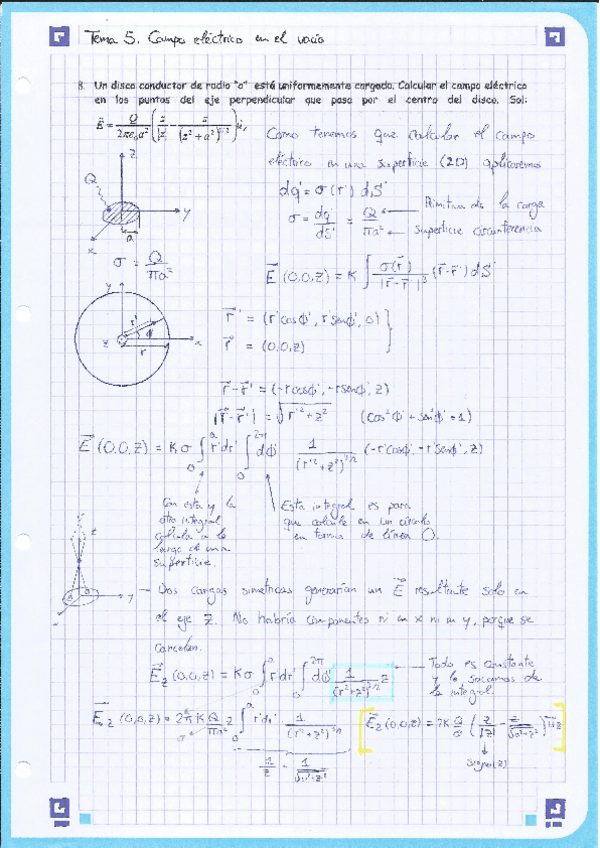 Tema 5. Campo eléctrico en el vacío
8. Un disco conductor de radio "a" está uniformemente cargado. Calcular el campo eléctrico
en los puntos del eje perpendicular que pasa por el centro del disco. Sol:
E⃗ = Q/(2πε₀a²) (z/|z| - z/(z²+a²)^(1/2)) u⃗z
Como tenemos que calcular el campo
eléctrico en una superficie (2D) aplicaremos
dq' = σ(r') dS'
σ = dq'/dS' = Q/πa²
de la carga
superficie circunferencia
z
Q
y
x
a
σ = Q/πa²
E⃗ (0,0,z) = K ∫ σ(r⃗)/|r⃗-r⃗'|³ (r⃗-r⃗') dS'
y
r'
ϕ'
z
r
x
r⃗' = (r'cosϕ', r'senϕ', 0)
r⃗ = (0,0,z)
r⃗-r⃗' = (-r'cosϕ', -r'senϕ', z)
|r⃗-r⃗'| = √(r'²+z²) (cos²ϕ' + sen²ϕ' = 1)
E⃗ (0,0,z) = Kσ ∫₀ᵃ r'dr' ∫₀²π dϕ' 1/(r'²+z²)^(3/2) (-r'cosϕ', -r'senϕ', z)
Con esta y la
otra integral
calcula a lo
largo de una
superficie.
Esta integral es para
que calcule en un círculo
en forma de línea O.
z
y
- Dos cargas simétricas generarían un E⃗ resultante solo en
el eje z. No habría componentes ni en x ni en y, porque se
cancelan.
E⃗z (0,0,z) = Kσ ∫₀ᵃ r'dr' ∫₀²π dϕ' 1/(r'²+z²)^(3/2) z
Todo es constante
y lo sacamos de
la integral.
E⃗z (0,0,z) = 2πK Q/πa² z ∫₀ᵃ r'dr' 1/(r'²+z²)^(3/2)
σ
E⃗z (0,0,z) = 2K Q/a² (z/|z| - z/√(a²+z²)) u⃗z
signo(z)